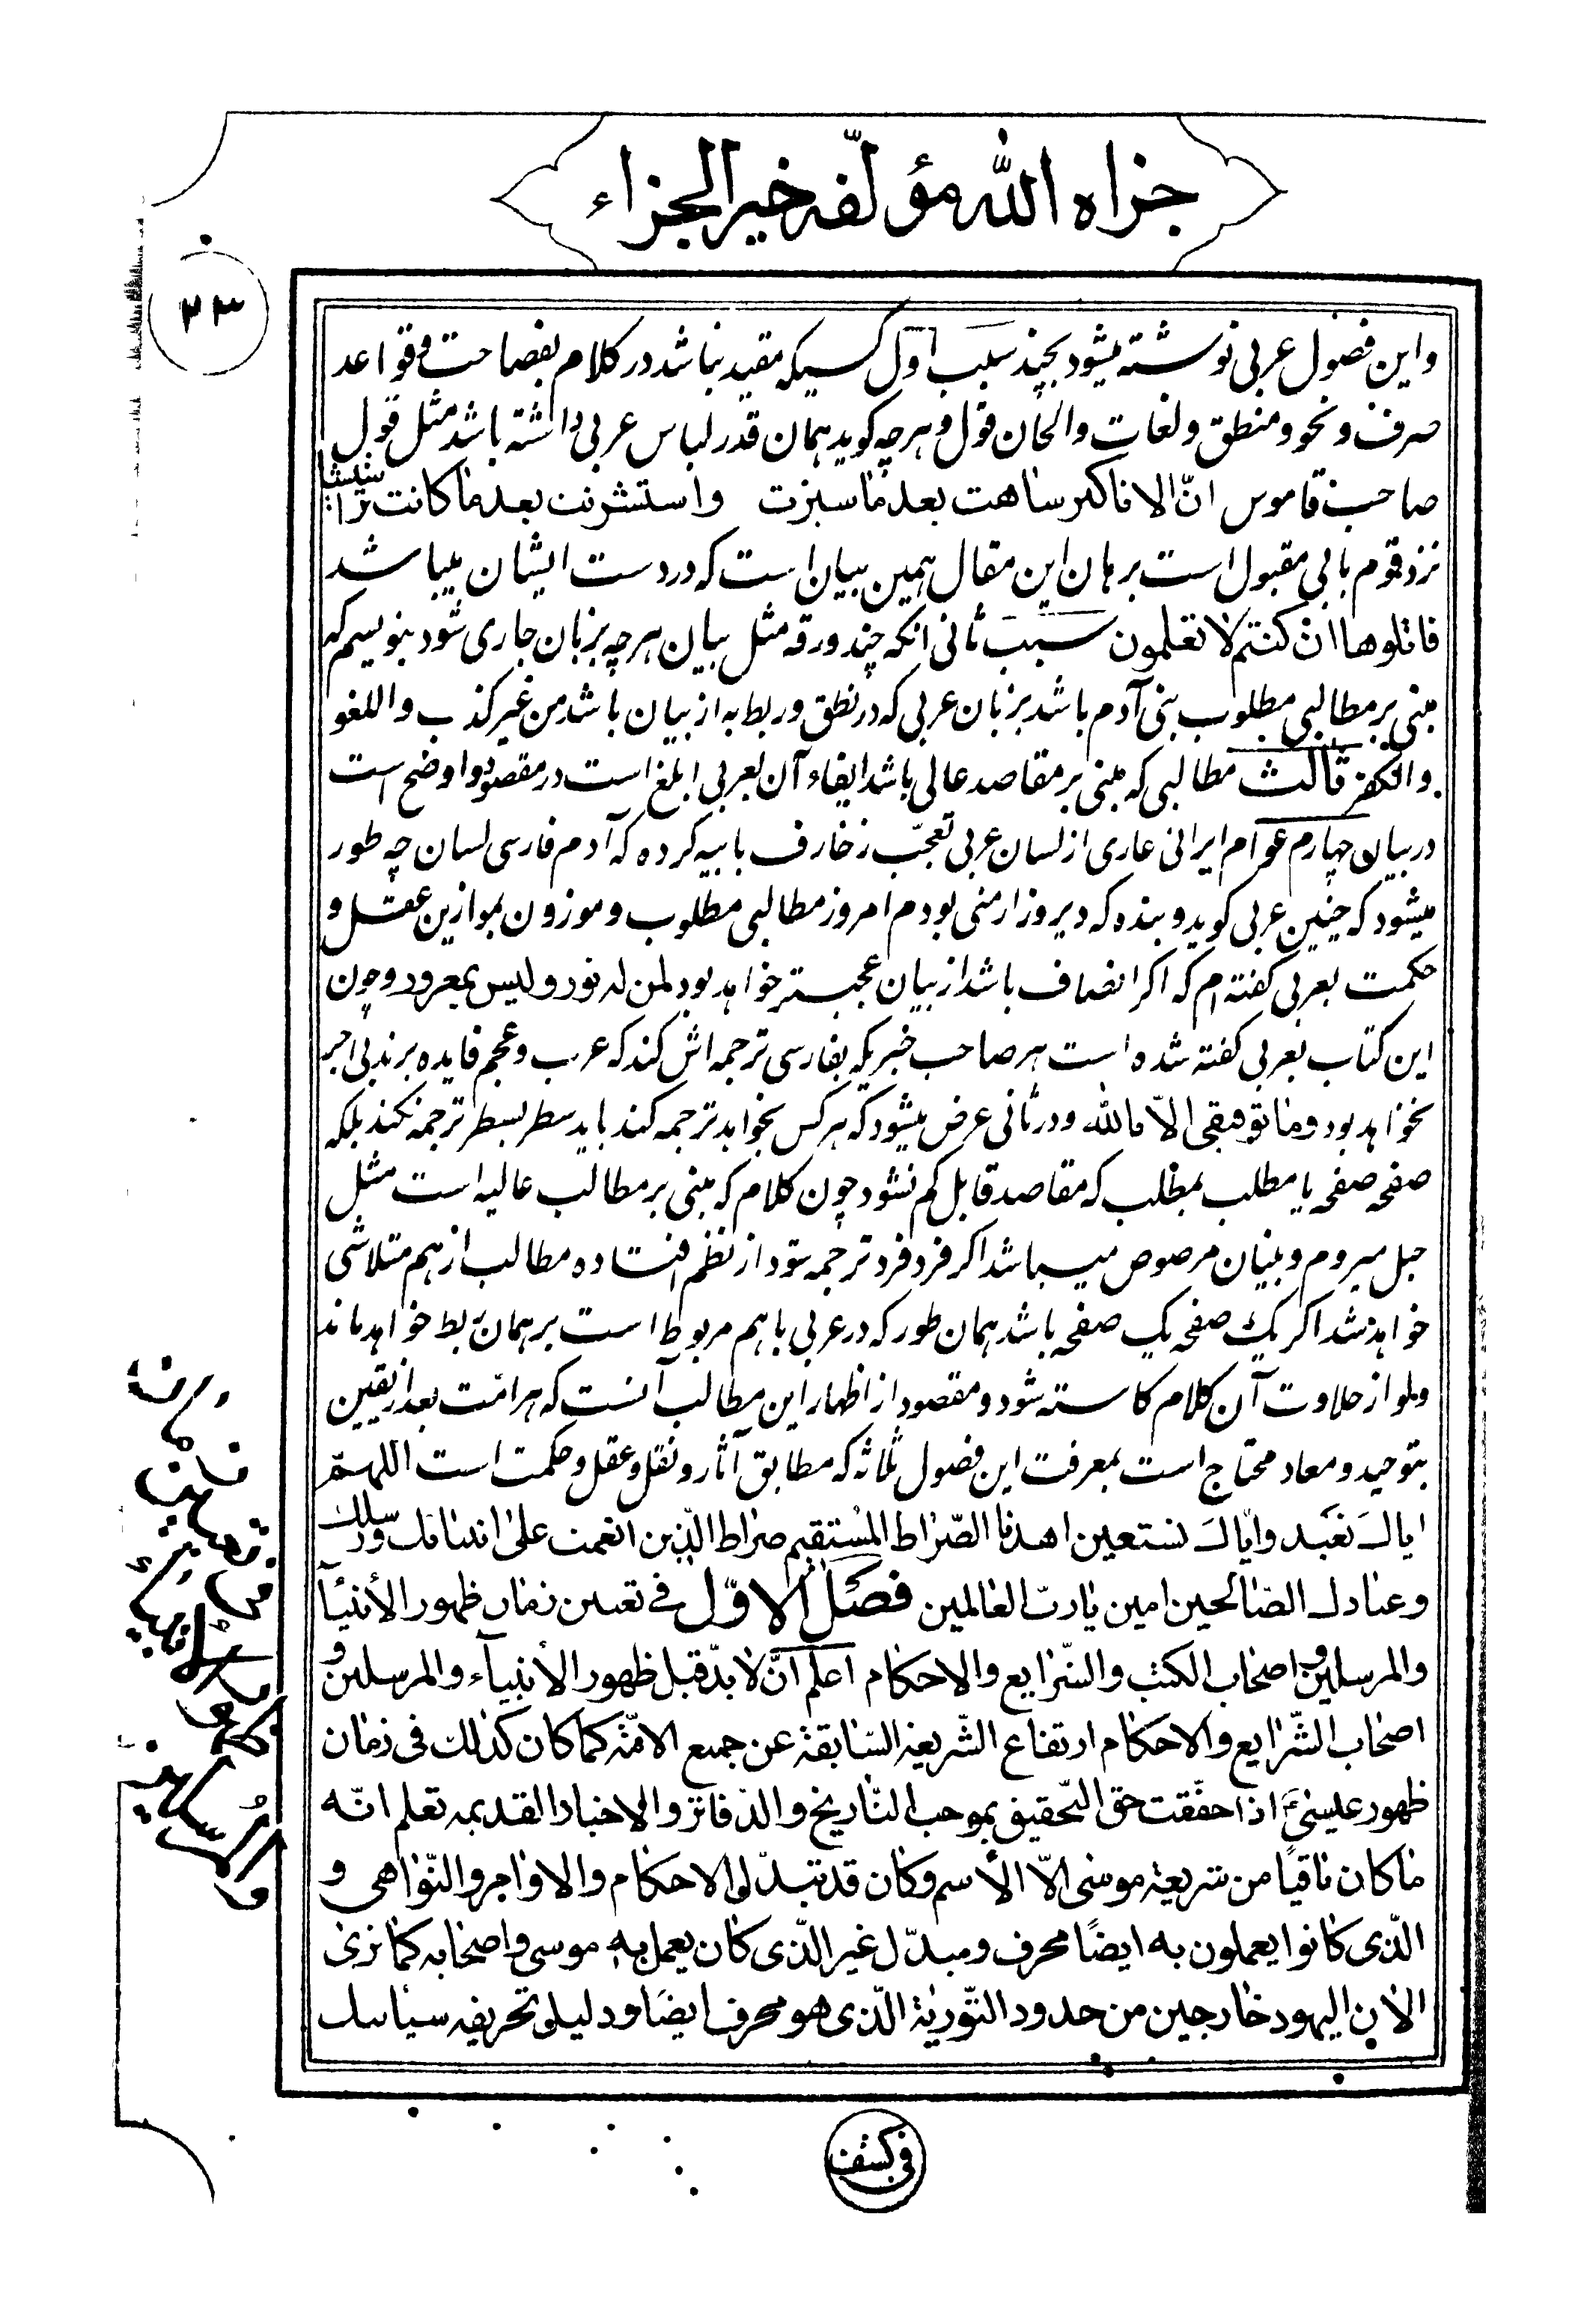 جزاه الله مؤلّفه خير الجزاء
٢٣
واين فصول عربى نوشته ميشود بچند سبب اول كسيكه مقيد نباشد در كلام بفصاحت وقواعد
صرف ونحو ومنطق ولغات والحان قول وهرچه كويد همان قدر لباس عربى داشته باشد مثل قول
صاحب قاموس انّ الافاكر ساهت بعد ما سبزت واستشرنت بعد ما كانت
نزد قوم بابى مقبول است برهان اين مقال همين بيان است كه در دست ايشان ميباشد
فاتلوها ان كنتم لا تعلمون سبب ثانى آنكه چند ورقه مثل بيان هرچه بزبان جارى شود بنويسيم كه
مبنى بر مطالبى مطلوب بنى آدم باشد بزبان عربى كه در نطق وربط به از بيان باشد من غير كذب واللغو
والكفر ثالث مطالبى كه مبنى بر مقاصد عالى باشد ايفاء آن بعربى ابلغ است در مقصود واوضح است
در بيان چهارم عوام ايرانى عارى از لسان عربى تعجّب زخارف بابيه كرده كه آدم فارسى لسان چه طور
ميشود كه چنين عربى كويد وبنده كه ديروز ارمنى بودم امروز مطالبى مطلوب وموزون بموازين عقل و
حكمت بعربى كفته ام كه اكر انصاف باشد از بيان عجبتر خواهد بود لمن له نور وليس بمعرور وچون
اين كتاب بعربى كفته شده است هر صاحب خبريكه بفارسى ترجمه اش كند كه عرب وعجم فايده برند بى اجر
نخواهد بود وما توفيقى الاّ بالله ودر ثانى عرض ميشود كه هر كس بخواهد ترجمه كند بايد سطر بسطر ترجمه نكند بلكه
صفحه صفحه يا مطلب بمطلب كه مقاصد قابل كم نشود چون كلام كه مبنى بر مطالب عاليه است مثل
حبل مبروم وبنيان مرصوص ميباشد اكر فرد فرد ترجمه شود از نظم افتاده مطالب از هم متلاشى
خواهد شد اكر يك صفحه يك صفحه باشد همان طور كه در عربى با هم مربوط است بر همان ربط خواهد ماند
ولو از حلاوت آن كلام كاسته شود ومقصود از اظهار اين مطالب آنست كه هر امّت بعد از يقين
بتوحيد ومعاد محتاج است بمعرفت اين فصول ثلاثه كه مطابق آثار ونقل وعقل وحكمت است اللهمّ
اياك نعبد واياك نستعين اهدنا الصّراط المستقيم صراط الّذين انعمت على انبيائك ورسلك
وعبادك الصّالحين امين يا ربّ العالمين فصل الاوّل فى تعيين زمان ظهور الأنبيآء
والمرسلين واصحاب الكتب والشّرايع والاحكام اعلم انّ لا بدّ قبل ظهور الأنبيآء والمرسلين و
اصحاب الشّرايع والاحكام ارتفاع الشّريعة السّابقة عن جميع الامّة كما كان كذلك فى زمان
ظهور عيسى اذا حقّقت حق التّحقيق بموجب التّاريخ والدّفاتر والاخبار القديمه تعلم انّه
ما كان باقيًا من شريعة موسى الاّ الأسم وكان قد تبدّلوا الاحكام والاوامر والنّواهى و
الّذى كانوا يعملون به ايضًا محرف ومبدّل غير الّذى كان يعمل به موسى واصحابه كما نرى
الان اليهود خارجين من حدود التّورية الّذى هو محرف ايضًا ودليل تحريفه سيأتيك
فى كشف